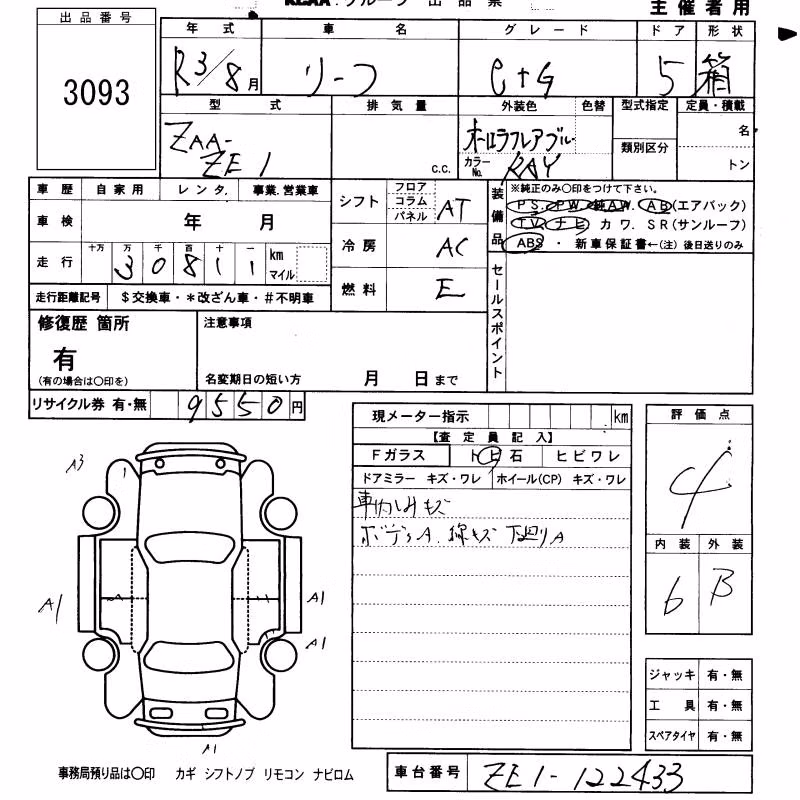 KCAA.グループ 出 品 票
主 催 者 用
出 品 番 号
3093
年 式 車 名 グ レ ー ド ド ア 形 状
R3/8月 リーフ e+G 5 箱
型 式 排 気 量 外装色 色替 型式指定 定員・積載
ZAA-ZE1 c.c. オーロラフレアブルー 類別区分 名
カラーNo. RAY トン
車 歴 自 家 用 レ ン タ. 事業.営業車
車 検 年 月
十万 万 千 百 十 一
走 行 3 0 8 1 1 km マイル
走行距離記号 $交換車・*改ざん車・#不明車
シフト フロア コラム パネル AT
冷 房 AC
燃 料 E
装備品 ※純正のみ〇印をつけて下さい。
PS. PW. 純AW. AB(エアバック)
TV. ナビ カ ワ. SR(サンルーフ)
ABS ・ 新車保証書←(注) 後日送りのみ
セールスポイント
修復歴 箇所
有
(有の場合は〇印を)
注意事項
名変期日の短い方 月 日まで
リサイクル券 有・無 9550円
現メーター指示 km
【査 定 員 記 入】
Fガラス ト ヒ 石 ヒビワレ
ドアミラー キズ・ワレ ホイール(CP) キズ・ワレ
車内しみキズ
ボディA. 線キズ 下廻りA
評 価 点
4
内 装 外 装
6 B
A3
A1
A1
A1
A1
ジャッキ 有・無
工 具 有・無
スペアタイヤ 有・無
事務局預り品は〇印 カギ シフトノブ リモコン ナビロム
車台番号 ZE1-122433